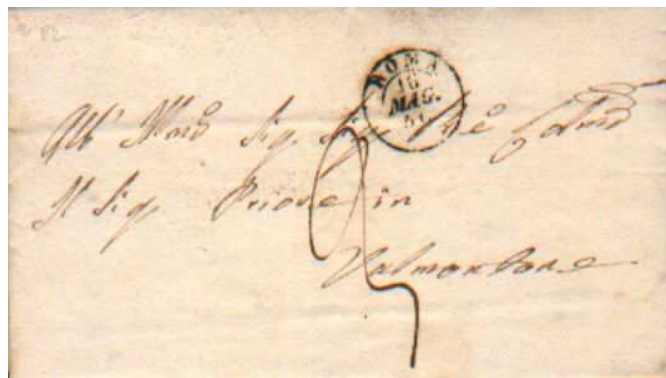 ROMA
16
MAG.
All' Illmo Sig. Sig.
Il Sig Priore in
Valmontone